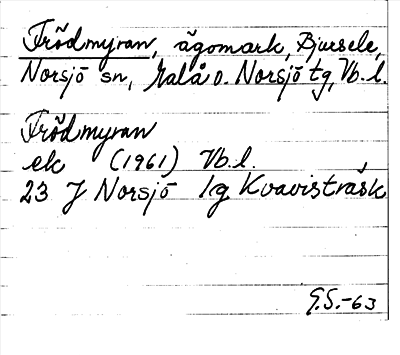 Frödmyran, ägomark, Bjursele,
Norsjö sn, Malå o. Norsjö tg, Vb. l.
Frödmyran
ek (1961) Vb. l.
23 J Norsjö lg Kvavisträsk
G.S.-63